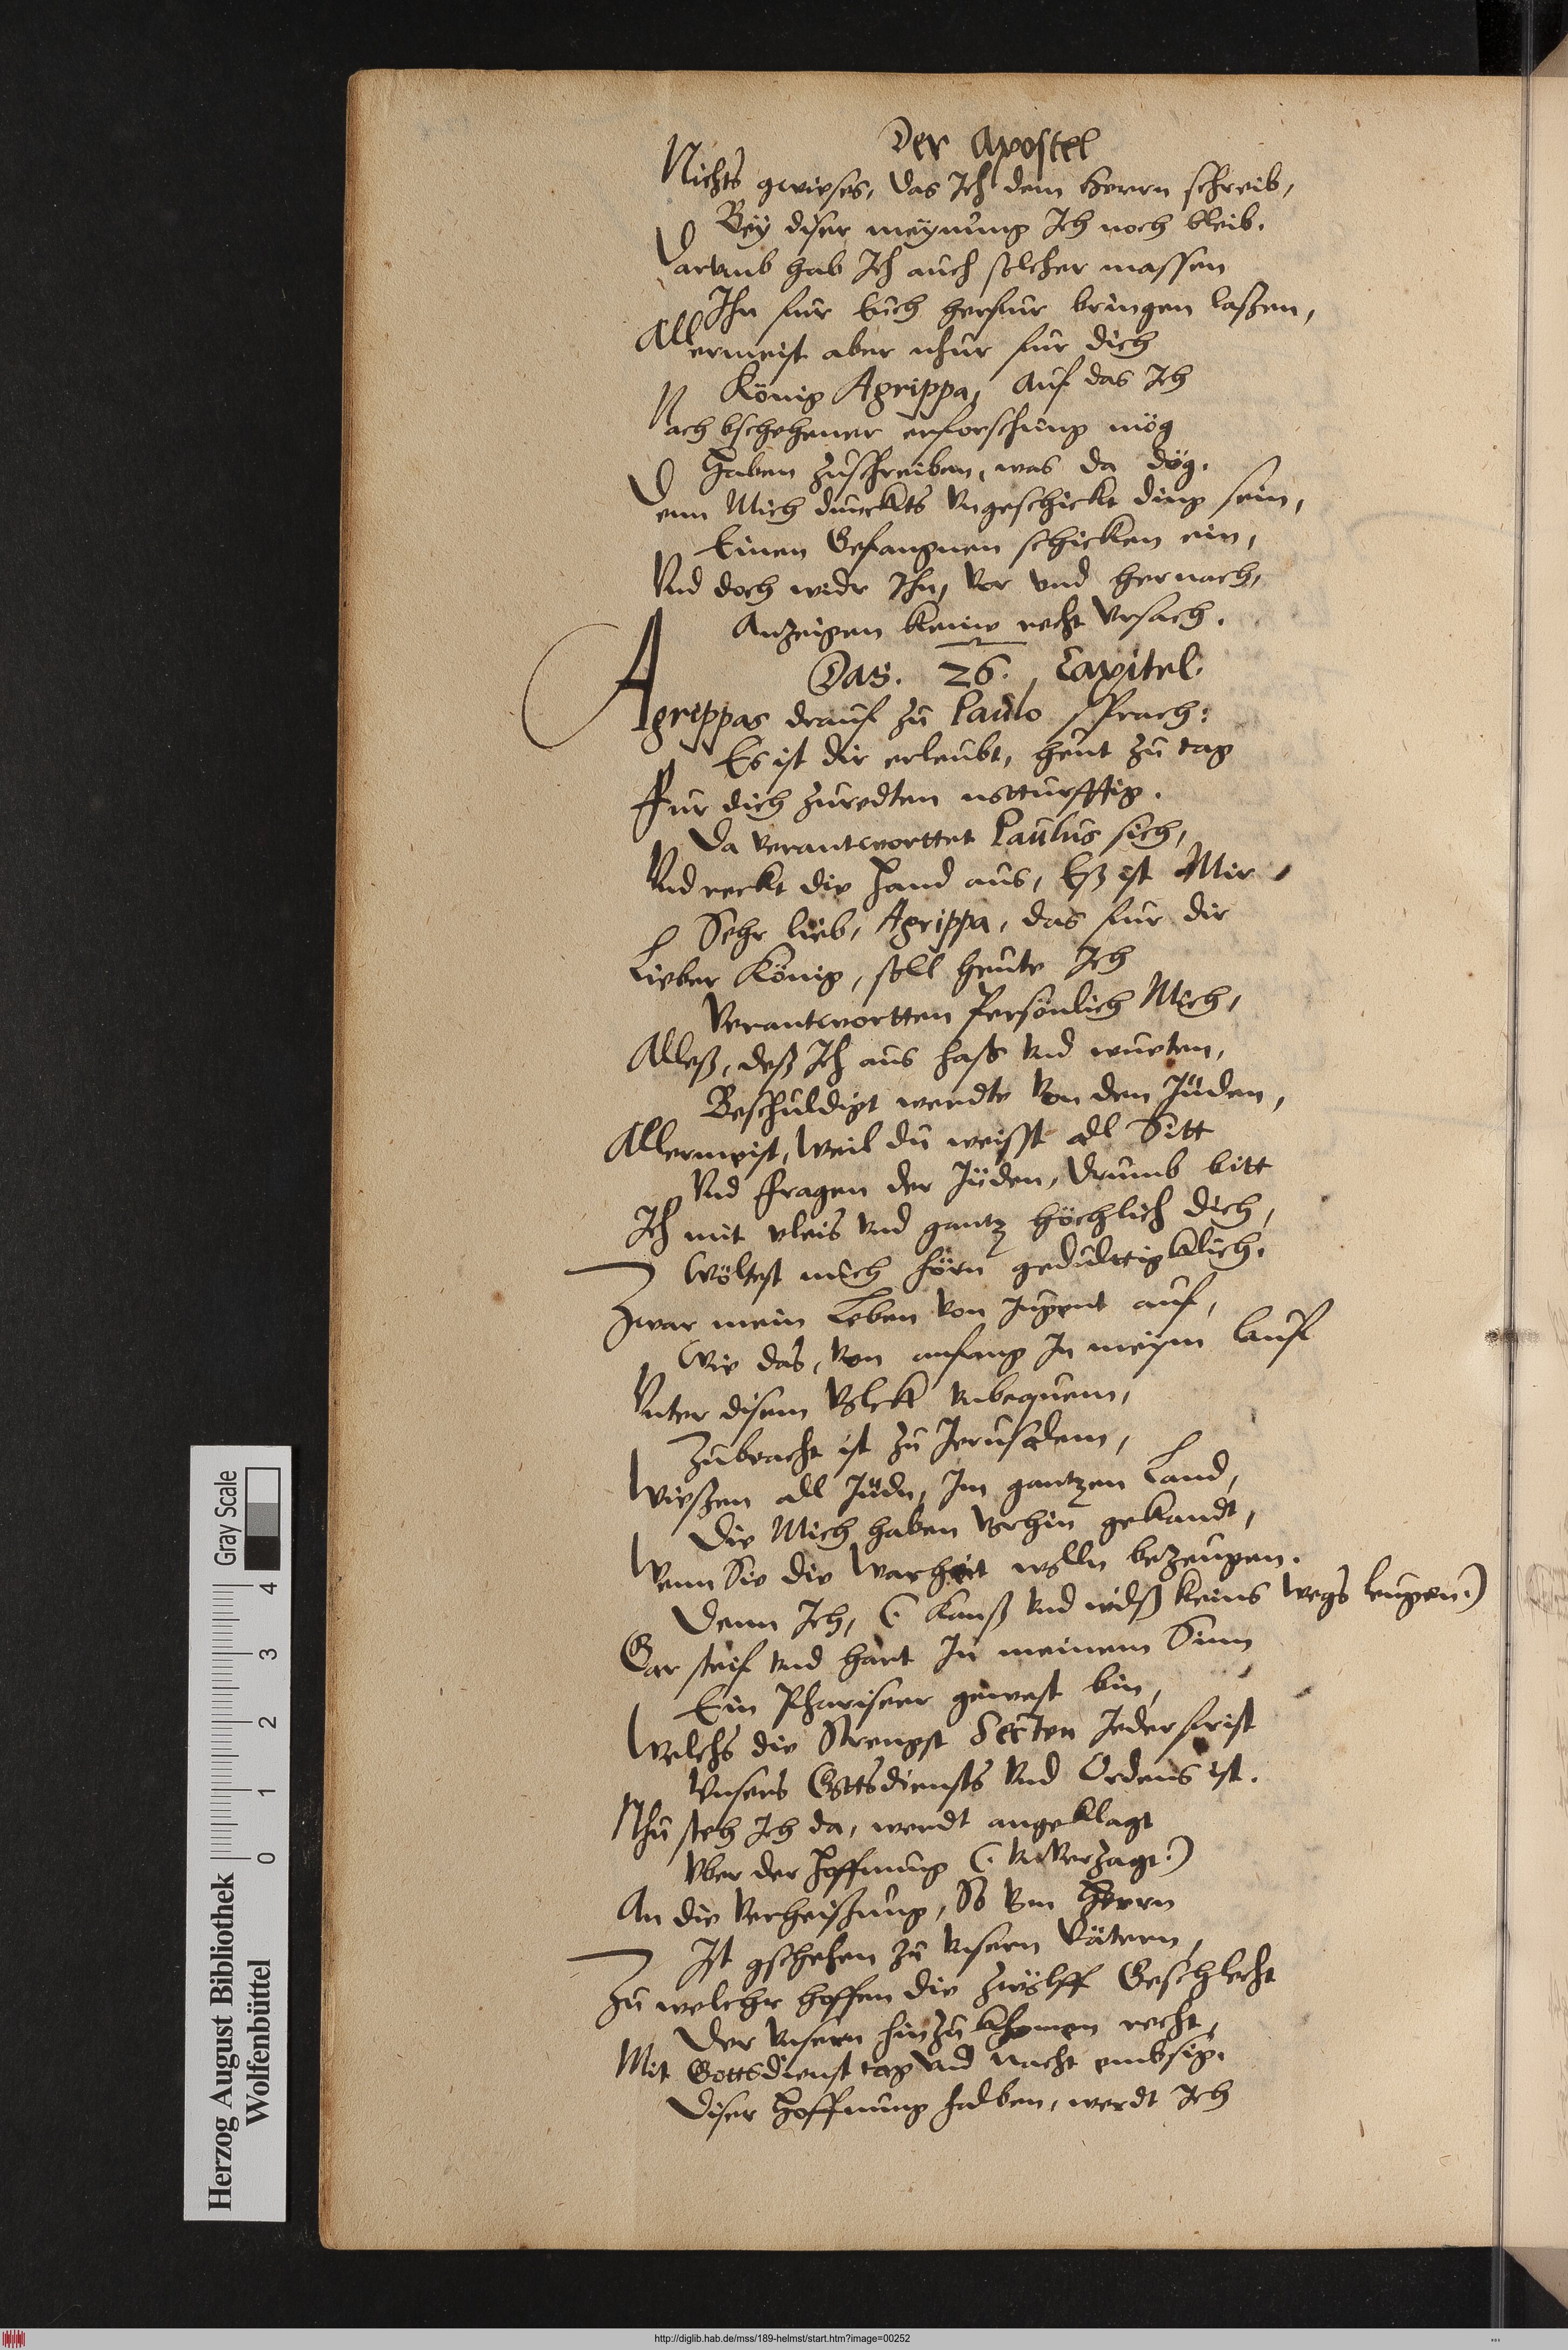 Der Apostel
Nichts gwieses, das Ich dem Herrn schreib,
Bey diser meynung Ich noch bleib.
Darumb hab Ich auch solcher massen
Ihn fur Euch herfur bringen laßen,
Allermeist aber nhur fur dich
König Agrippa, auf das Ich
Nach bschehener erforschung mög
Haben zuschreiben, was da dög.
Denn Mich dunckts Vngeschickt ding sein,
Einen Gefangnen schicken ein,
Vnd doch widr Ihn, vor vnd hernach,
Anzeigen keine recht Vrsach.
Das. 26. Capitel.
Agrippas drauf zu Paulo sprach:
Es ist dir erleubt, heut zu tag
Fur dich zuredten notturfftig.
Da verantworttet Paulus sich,
Vnd reckt die Hand aus, Eß ist Mir
Sehr lieb, Agrippa, das fur dir
Lieber König, soll heute Ich
Verantwortten Persönlich Mich,
Alleß, deß Ich aus haß vnd wueten,
Beschuldigt werdte von den Jüden,
Allermeist, Weil du weisst all Sitt
Vnd Fragen der Jüden, Drumb bitt
Ich mit vleis vnd gantz höchlich dich,
Wöltest mich hörn gedulttigklich.
Zwar mein Leben von Jugent auf,
Wie das, von anfang In meym lauf
Vnter disem Volck vnbequem,
Zubracht ist zu Jerusalem,
Wießen all Jüdn, Im gantzen Land,
Die Mich haben vorhin gekandt,
Wenn Sie die Warheit wolln bezeugen.
Denn Ich, (. Kanß vnd wilß keins wegs leugen.)
Gar steif vnd hart In meinem Sinn
Ein Phariseer gewest bin,
Welchs die Strengst Secten Jederfrist
Vnsers Gottsdiensts vnd Ordens ist.
Nhu steh Ich da, werdt angeklagt
Vber der Hoffnung (. vnverzagt.)
An die Verheissung, So vom Herrn
Ist gschehen zu vnsern Vätern,
Zu welcher hoffen die zwölff Geschlecht
Der vnsern hinzukhomen recht,
Mit Gottsdienst tag vnd nacht embsig.
Diser Hoffnung halben, werdt Ich
Herzog August Bibliothek
Wolfenbüttel
0 1 2 3 4
Gray Scale
http://diglib.hab.de/mss/189-helmst/start.htm?image=00252